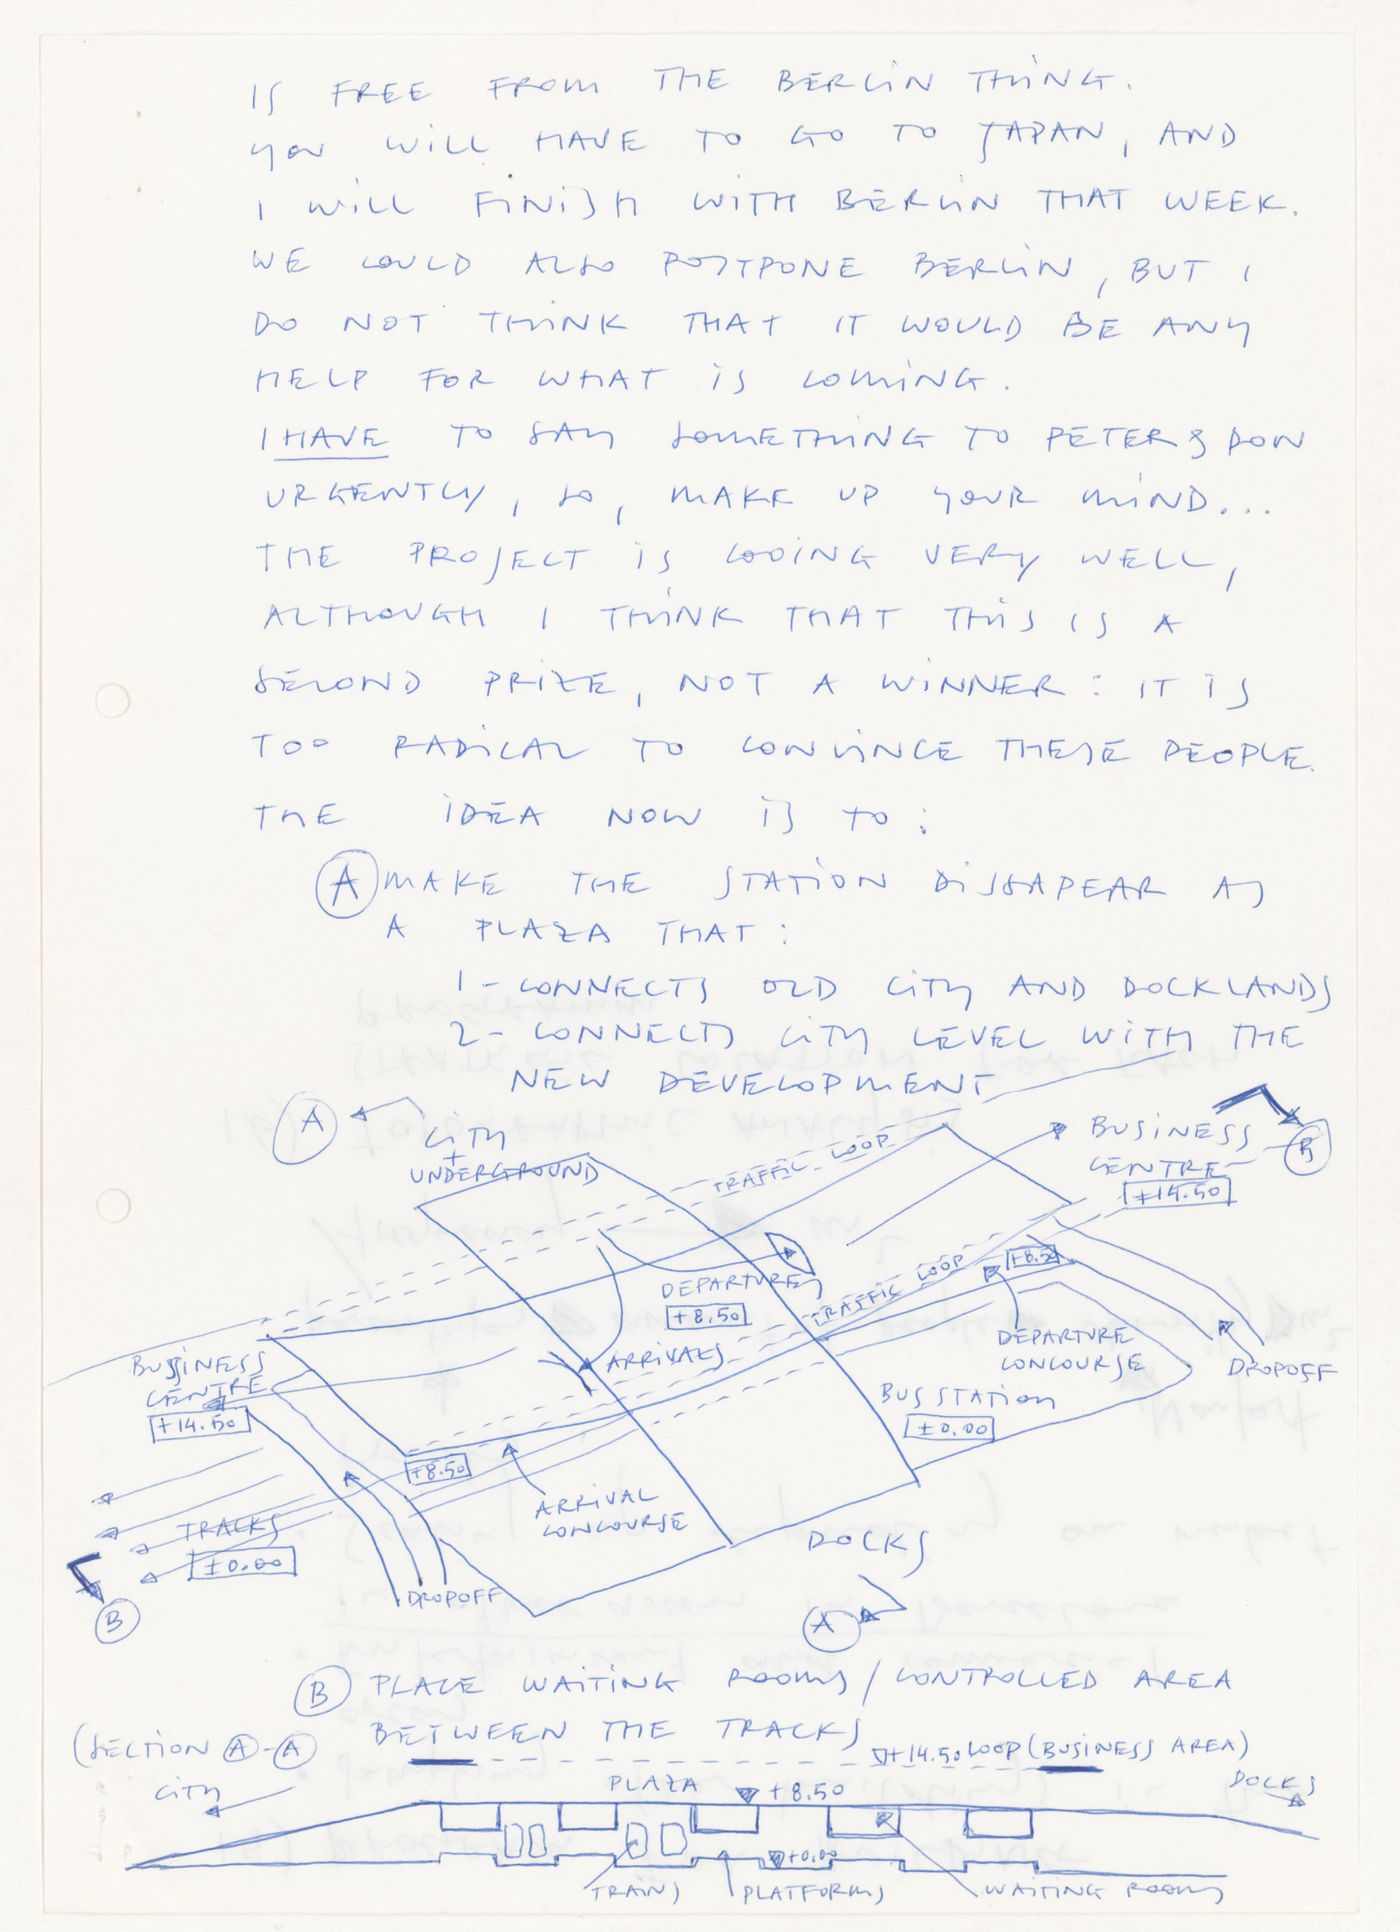 IS FREE FROM THE BERLIN THING.
YOU WILL HAVE TO GO TO JAPAN, AND
I WILL FINISH WITH BERLIN THAT WEEK.
WE COULD ALSO POSTPONE BERLIN, BUT I
DO NOT THINK THAT IT WOULD BE ANY
HELP FOR WHAT IS COMING.
I HAVE TO SAY SOMETHING TO PETER & DON
URGENTLY, SO, MAKE UP YOUR MIND...
THE PROJECT IS GOING VERY WELL,
ALTHOUGH I THINK THAT THIS IS A
SECOND PRIZE, NOT A WINNER: IT IS
TOO RADICAL TO CONVINCE THESE PEOPLE.
THE IDEA NOW IS TO:
A MAKE THE STATION DISSAPEAR AS
A PLAZA THAT:
1- CONNECTS OLD CITY AND DOCKLANDS
2- CONNECTS CITY LEVEL WITH THE
NEW DEVELOPMENT
A
CITY
+
UNDERGROUND
TRAFFIC LOOP
BUSINESS
CENTRE
±14.50
B
DEPARTURES
+8.50
TRAFFIC LOOP
+8.50
ARRIVALS
DEPARTURE
CONCOURSE
DROPOFF
BUSINESS
CENTRE
+14.50
BUS STATION
±0.00
+8.50
ARRIVAL
CONCOURSE
TRACKS
±0.00
DOCKS
DROPOFF
B
A
B PLACE WAITING ROOMS/CONTROLLED AREA
BETWEEN THE TRACKS
(SECTION A-A
+14.50 LOOP (BUSINESS AREA)
CITY
PLAZA
+8.50
DOCKS
±0.00
TRAINS
PLATFORMS
WAITING ROOMS